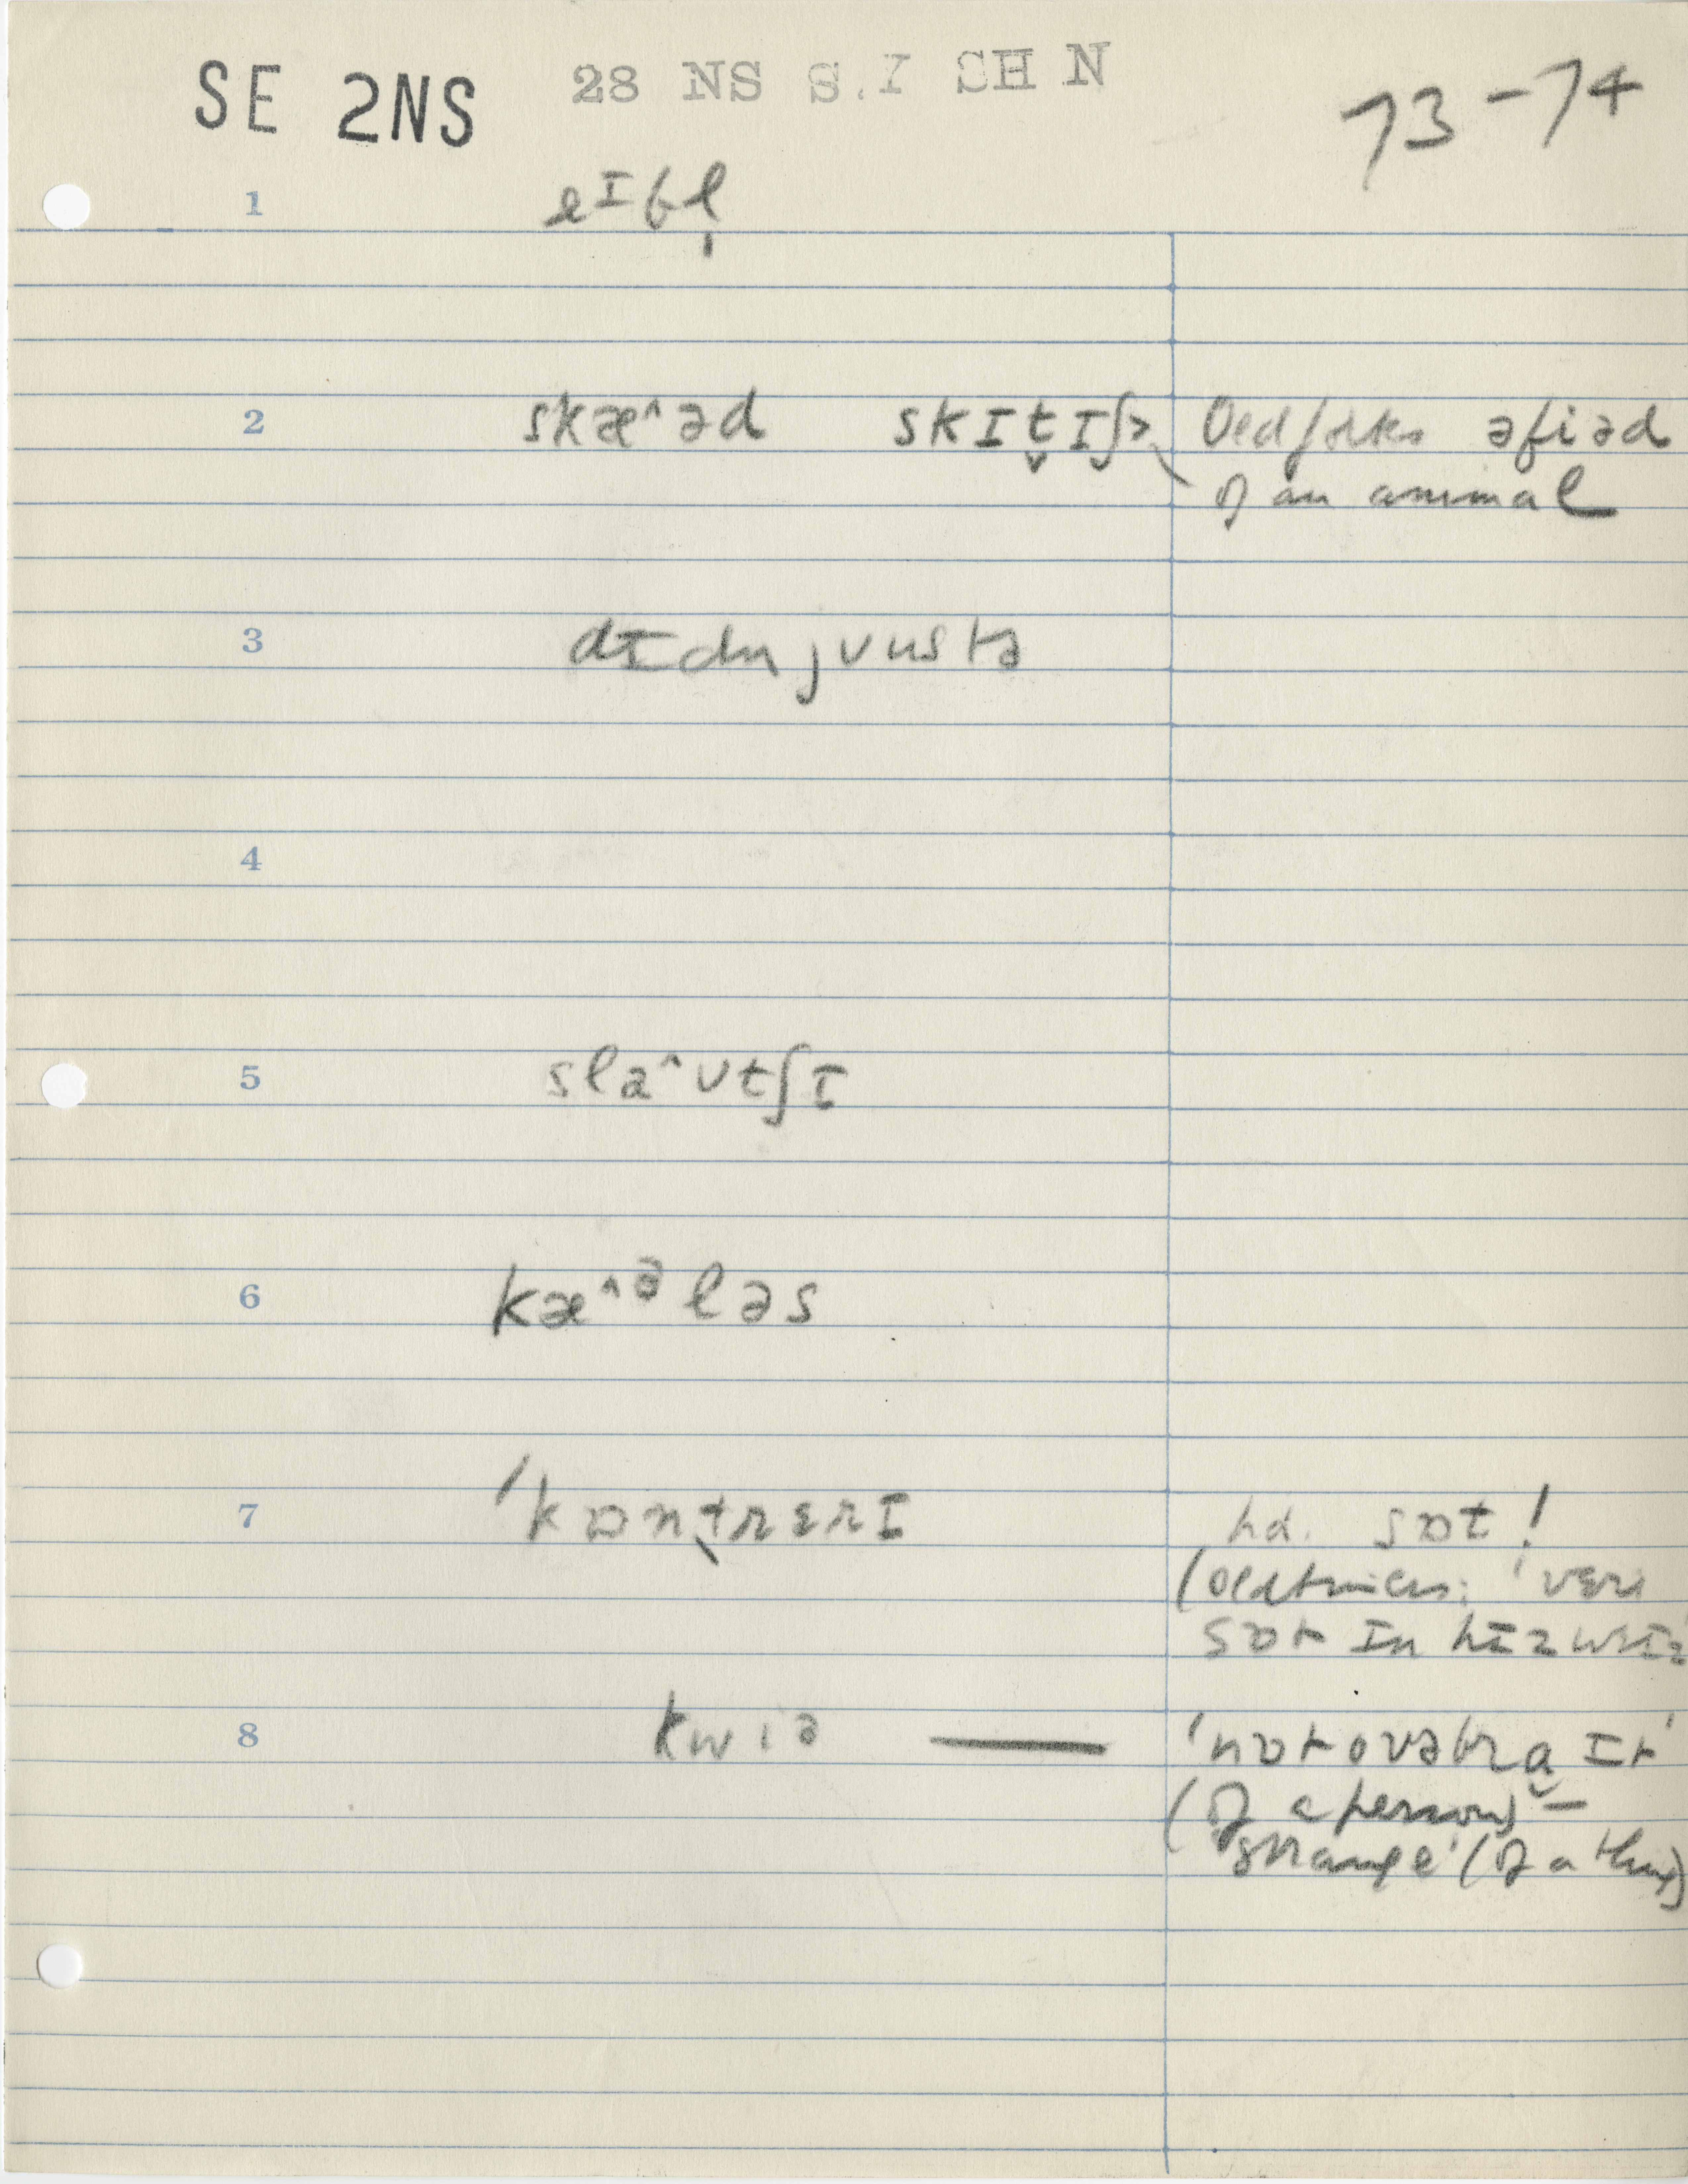 SE 2NS 28 NS S.Y SH N 73-74
1 eᴵbl̩
2 skæ^əd skɪt̬ɪʃ> Old folks əfiəd
of an animal
3 dɪdn jʊustə
4
5 sla^ʊtʃɪ
6 kæ^ᵊləs
7 'kɒntrɛrɪ hd. sɒt!
(oldtimers: 'vɛri
sɒt ɪn hɪz weɪz
8 kwiə — 'nɒt ovəbraɪt'
(of a person) –
'strange' (of a thing)